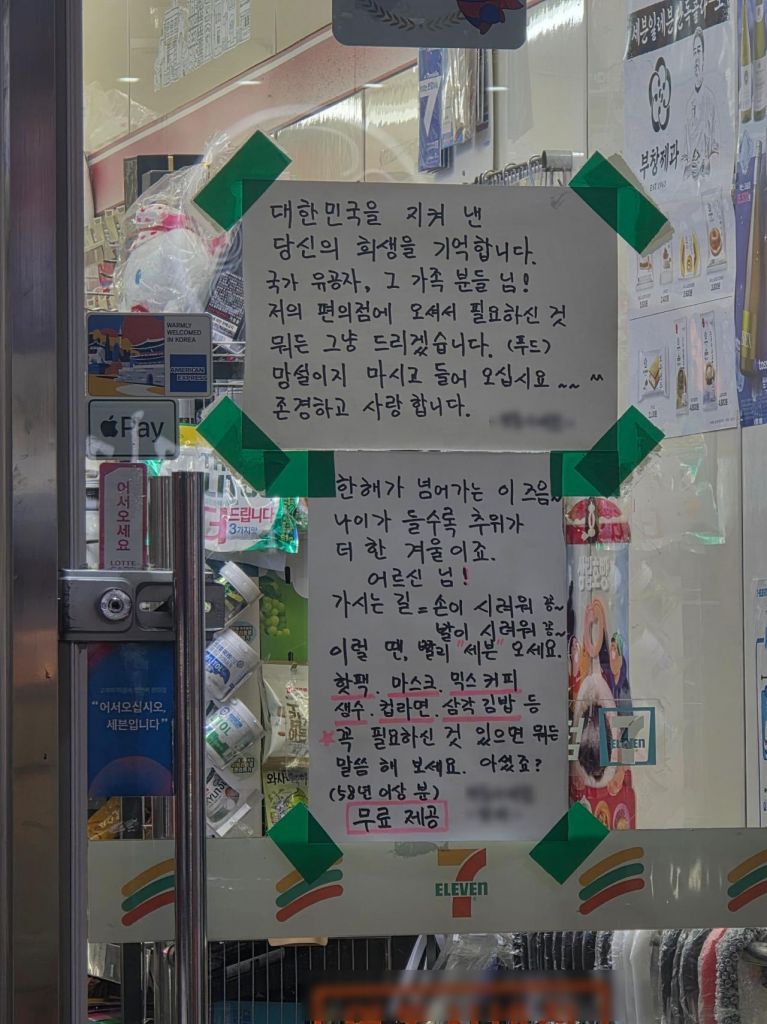 세븐일레븐 단독콜라보
부창제과
EST 1963
7
대한민국을 지켜 낸
당신의 희생을 기억합니다.
국가 유공자, 그 가족 분들 님!
저의 편의점에 오셔서 필요하신 것
뭐든 그냥 드리겠습니다. (푸드)
망설이지 마시고 들어 오십시요 ~~ ^^
존경하고 사랑 합니다.
WARMLY
WELCOMED
IN KOREA
AMERICAN
EXPRESS
Pay
어서오세요
LOTTE
드립니다
3가지맛
한해가 넘어가는 이 즈음~
나이가 들수록 추위가
더 한 겨울이죠.
어르신 님!
가시는 길 = 손이 시려워 꽁~
발이 시려워 꽁~
이럴 땐, 빨리 "세븐" 오세요.
핫팩. 마스크. 믹스커피
생수. 컵라면. 삼각김밥 등
꼭 필요하신 것 있으면 뭐든
말씀 해 보세요. 아셨죠?
(58면 이상 분)
무료 제공
"어서오십시오,
세븐입니다"
와사
7
ELEVEN
7
ELEVEN